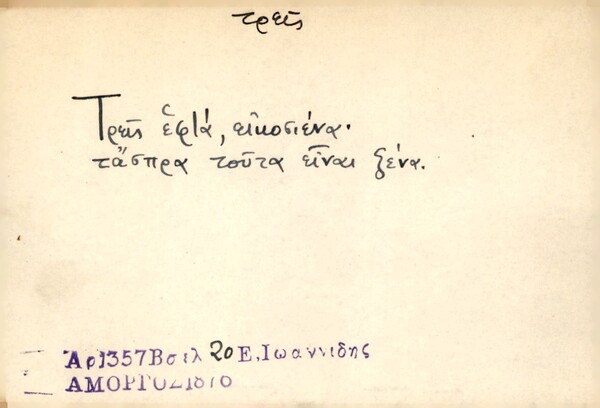 τρεῖς
Τρεῖς ἑφτά, εἰκοσιένα·
τἄσπρα τοῦτα εἶναι ξένα.
Ἀρ1357Βσελ 20 Ε, Ιωαννιδης
ΑΜΟΡΓΟΣ1876